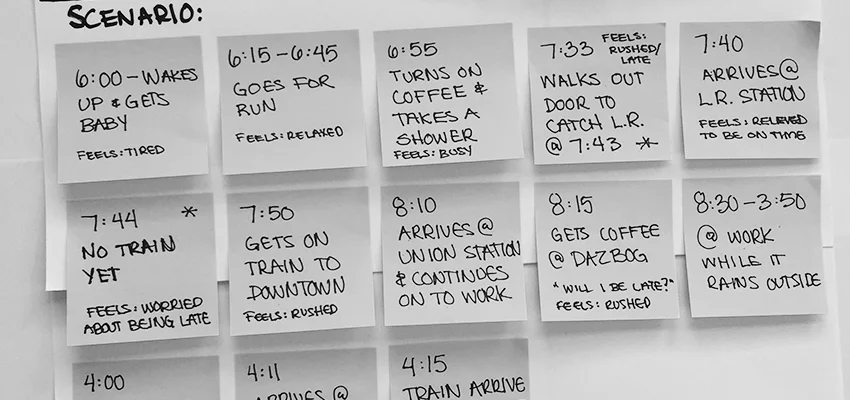 SCENARIO:
6:00 - WAKES
UP & GETS
BABY
FEELS: TIRED
6:15 - 6:45
GOES FOR
RUN
FEELS: RELAXED
6:55
TURNS ON
COFFEE &
TAKES A
SHOWER
FEELS: BUSY
7:33 FEELS:
RUSHED/
LATE
WALKS OUT
DOOR TO
CATCH L.R.
@ 7:43 *
7:40
ARRIVES @
L.R. STATION
FEELS: RELIEVED
TO BE ON TIME
7:44 *
NO TRAIN
YET
FEELS: WORRIED
ABOUT BEING LATE
7:50
GETS ON
TRAIN TO
DOWNTOWN
FEELS: RUSHED
8:10
ARRIVES @
UNION STATION
& CONTINUES
ON TO WORK
8:15
GETS COFFEE
@ DAZBOG
"WILL I BE LATE?"
FEELS: RUSHED
8:30 - 3:50
@ WORK
WHILE IT
RAINS OUTSIDE
4:00
4:11
ARRIVES @
4:15
TRAIN ARRIVE